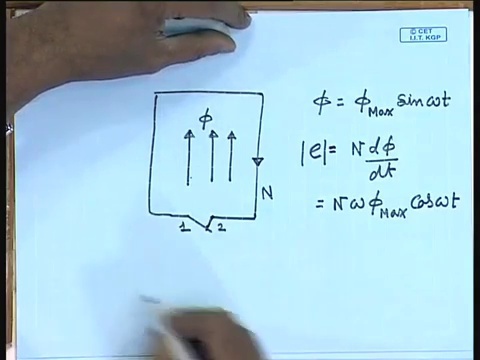 © CET
I.I.T. KGP
ϕ = ϕMax sin ωt
ϕ
|e| = N dϕ/dt
N
= N ω ϕMax cos ωt
1 2